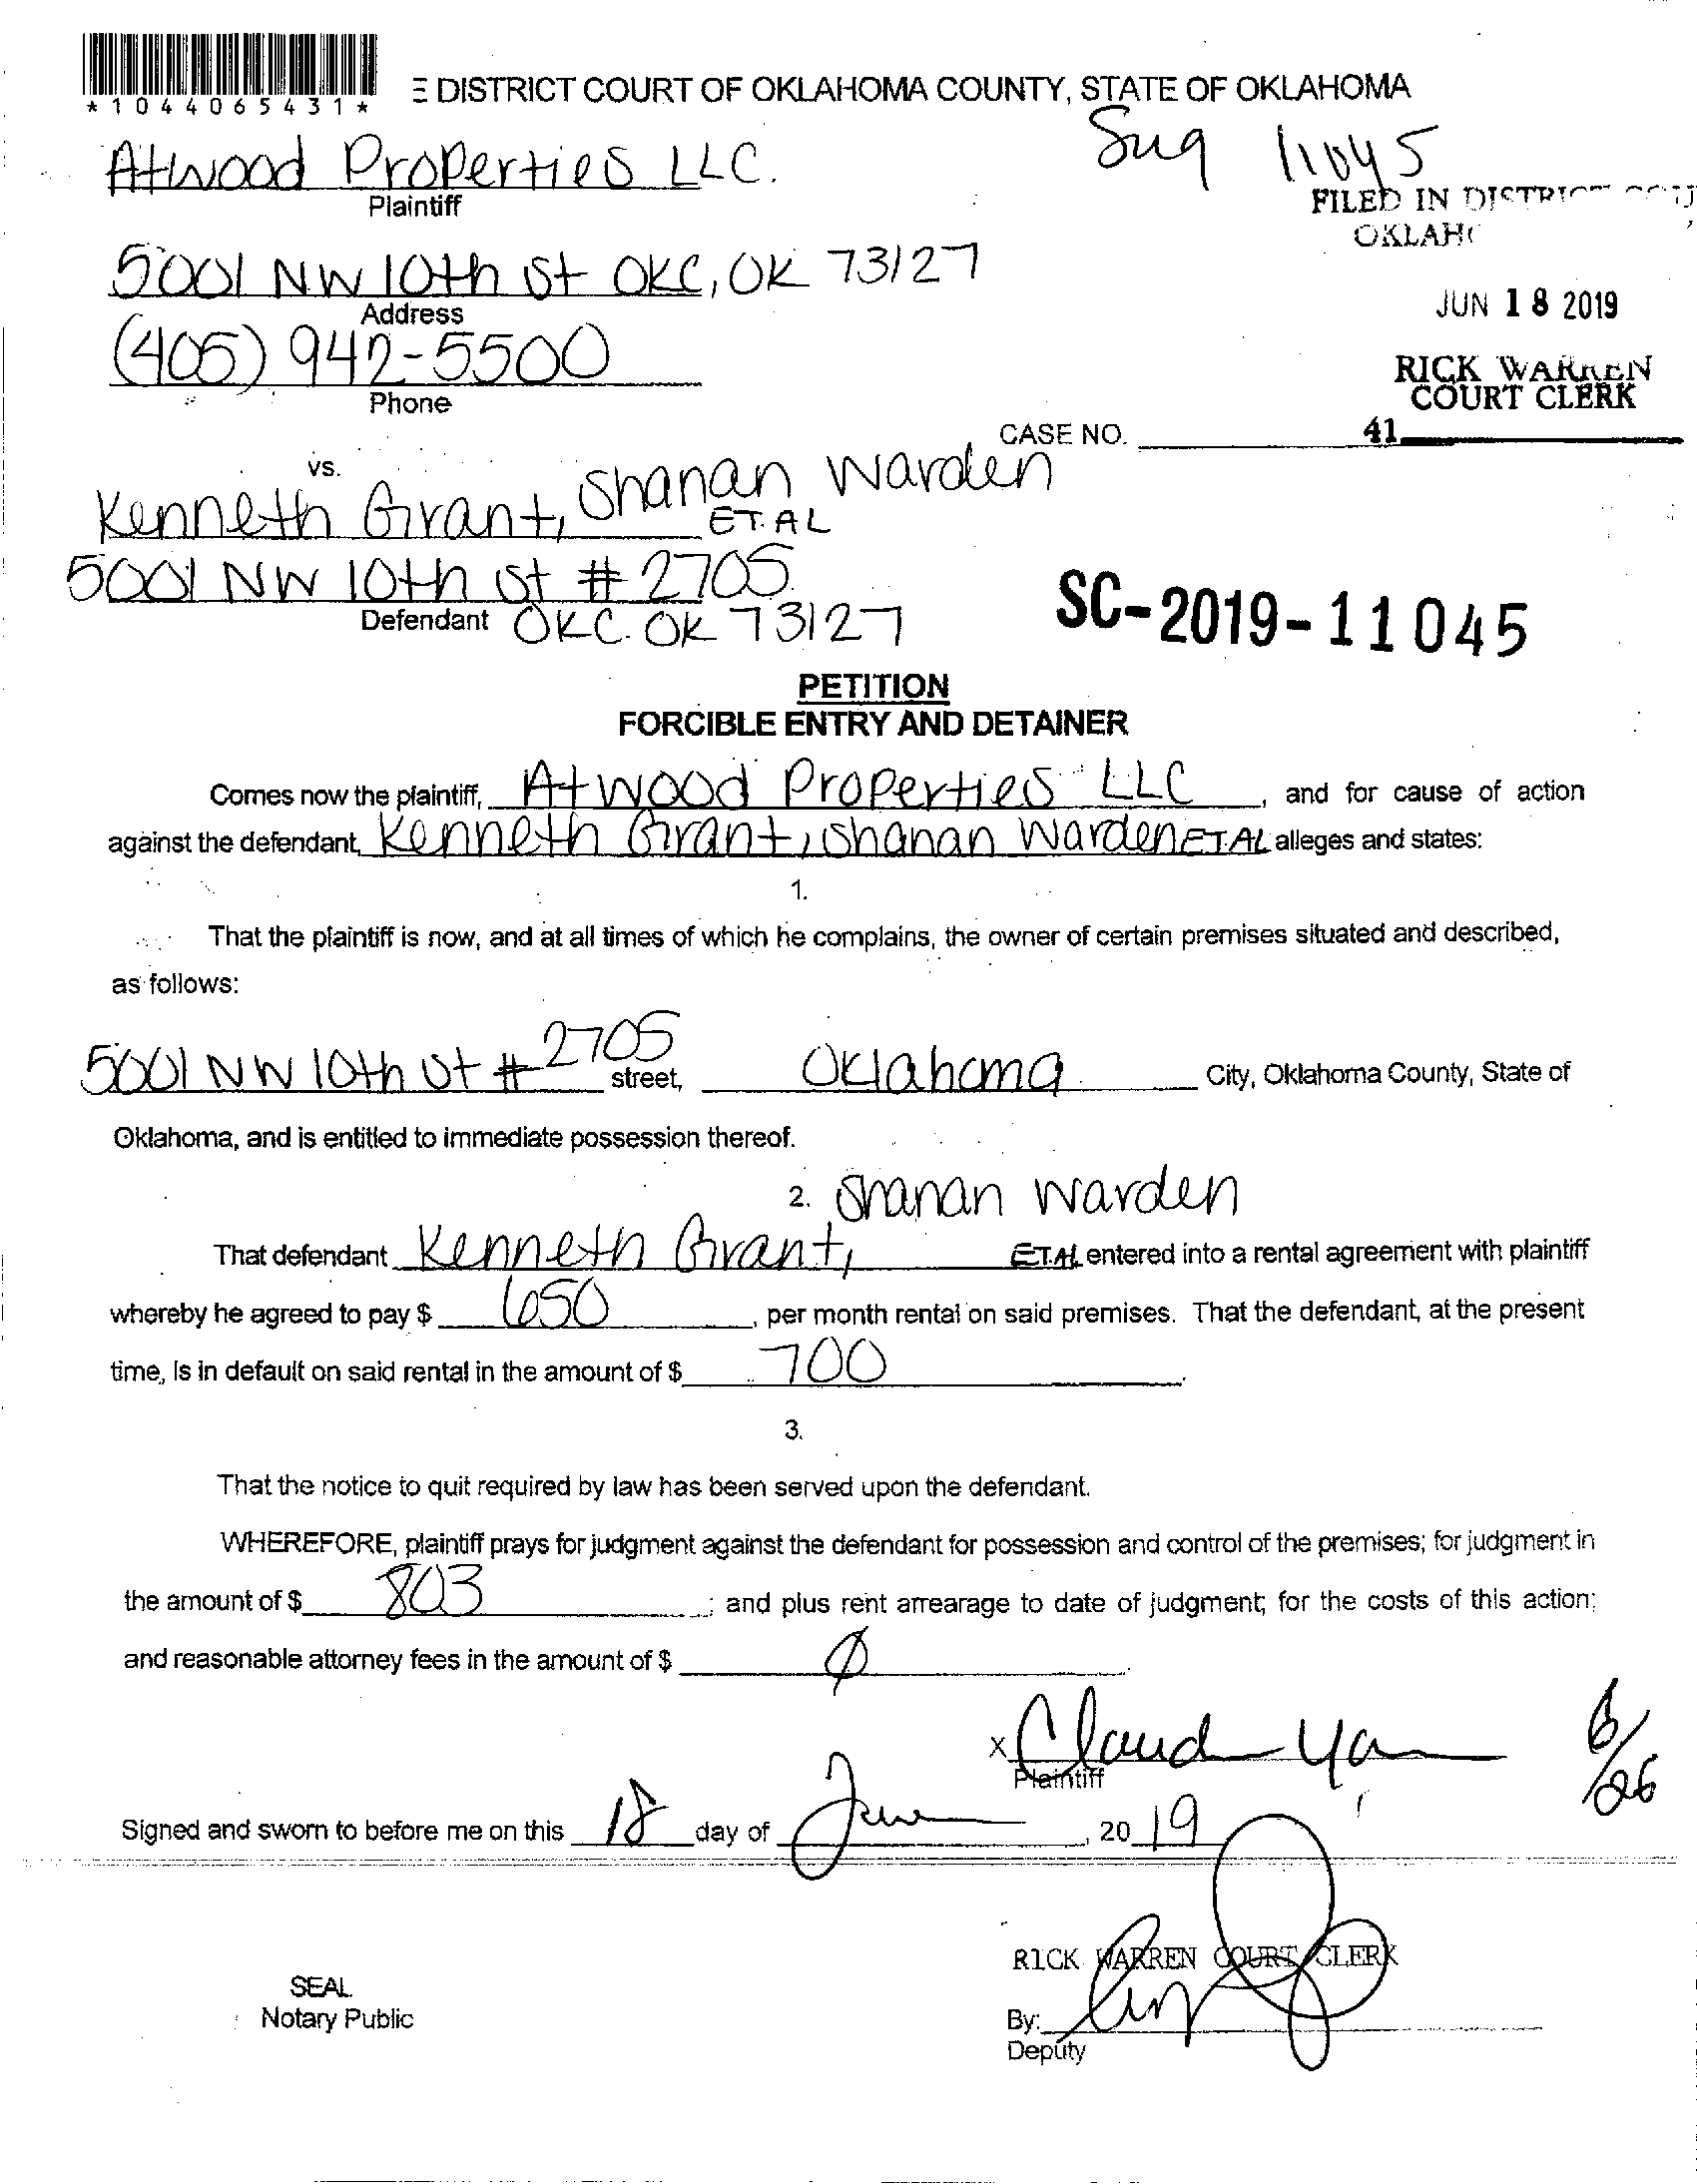 *1044065431*
E DISTRICT COURT OF OKLAHOMA COUNTY, STATE OF OKLAHOMA
11045
Atwood Properties LLC.
Plaintiff
FILED IN DISTRICT
5001 NW 10th St OKC, OK 73127
Address
JUN 18 2019
(405) 942-5500
Phone
RICK WARREN
COURT CLERK
CASE NO.
41
vs.
Kenneth Grant, Shanan Warden
ET. AL
5001 NW 10th St # 2705
Defendant OKC. OK 73127
SC-2019-11045
PETITION
FORCIBLE ENTRY AND DETAINER
Comes now the plaintiff, Atwood Properties LLC, and for cause of action
against the defendant, Kenneth Grant, Shanan Warden ET. AL alleges and states:
1.
That the plaintiff is now, and at all times of which he complains, the owner of certain premises situated and described,
as follows:
5001 NW 10th St # 2705 street, Oklahoma City, Oklahoma County, State of
Oklahoma, and is entitled to immediate possession thereof.
2. Shanan Warden
That defendant Kenneth Grant, ET. AL entered into a rental agreement with plaintiff
whereby he agreed to pay $ 650, per month rental on said premises. That the defendant, at the present
time, is in default on said rental in the amount of $ 700.
3.
That the notice to quit required by law has been served upon the defendant.
WHEREFORE, plaintiff prays for judgment against the defendant for possession and control of the premises; for judgment in
the amount of $ 803; and plus rent arrearage to date of judgment; for the costs of this action;
and reasonable attorney fees in the amount of $ Ø.
X
Plaintiff
6/26
Signed and sworn to before me on this 18 day of June, 2019
RICK WARREN COURT CLERK
SEAL
Notary Public
By:
Deputy